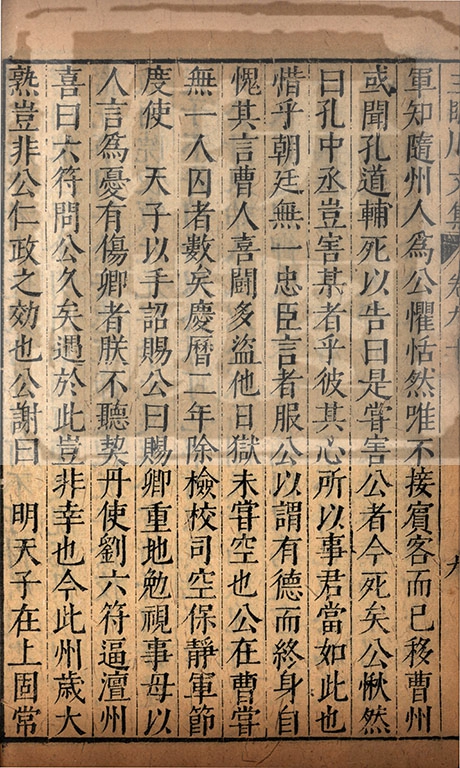 王臨川文集 卷九十 九
軍知隨州人爲公懼恬然唯不接賓客而已移曹州
或聞孔道輔死以告曰是嘗害公者今死矣公愀然
曰孔中丞豈害某者乎彼其心所以事君當如此也
惜乎朝廷無一忠臣言者服公以謂有德而終身自
愧其言曹人喜鬭多盜他日獄未嘗空也公在曹嘗
無一人囚者數矣慶曆二年除檢校司空保靜軍節
度使 天子以手詔賜公曰賜卿重地勉視事毋以
人言爲憂有傷卿者朕不聽契丹使劉六符逼澶州
喜曰六符問公久矣遇於此豈非幸也今此州歲大
熟豈非公仁政之効也公謝曰 明天子在上固常